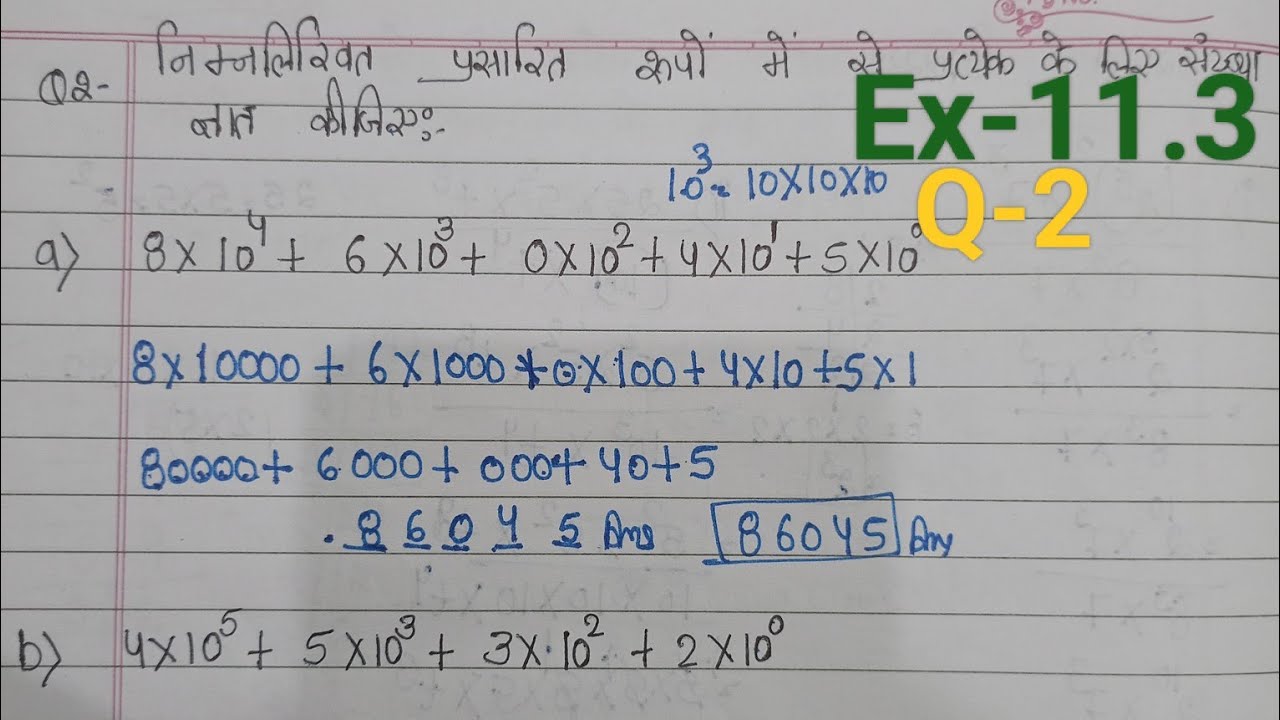 Q2- निम्नलिखित प्रसारित रूपों में से प्रत्येक के लिए संख्या
ज्ञात कीजिए:-
Ex-11.3
Q-2
10³ = 10×10×10
a) 8×10⁴ + 6×10³ + 0×10² + 4×10¹ + 5×10⁰
8×10000 + 6×1000 + 0×100 + 4×10 + 5×1
80000 + 6000 + 000 + 40 + 5
8 6 0 4 5 Ans 86045 Ans
b) 4×10⁵ + 5×10³ + 3×10² + 2×10⁰